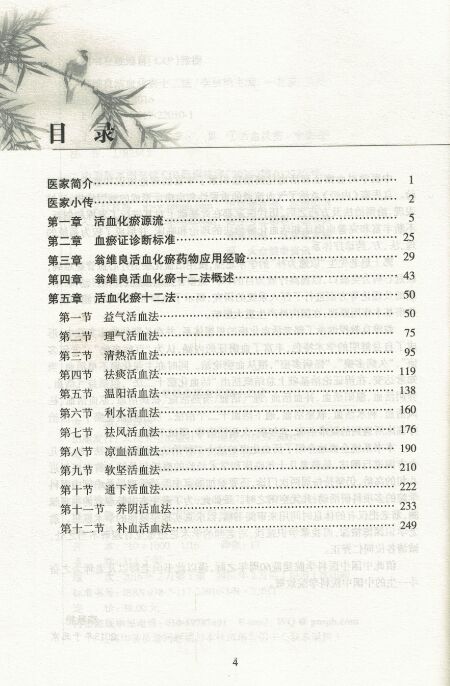 目 录
医家简介…………1
医家小传…………2
第一章 活血化瘀源流…………5
第二章 血瘀证诊断标准…………25
第三章 翁维良活血化瘀药物应用经验…………29
第四章 翁维良活血化瘀十二法概述…………43
第五章 活血化瘀十二法…………50
第一节 益气活血法…………50
第二节 理气活血法…………75
第三节 清热活血法…………95
第四节 祛痰活血法…………119
第五节 温阳活血法…………138
第六节 利水活血法…………160
第七节 祛风活血法…………176
第八节 凉血活血法…………190
第九节 软坚活血法…………210
第十节 通下活血法…………222
第十一节 养阴活血法…………233
第十二节 补血活血法…………249
4